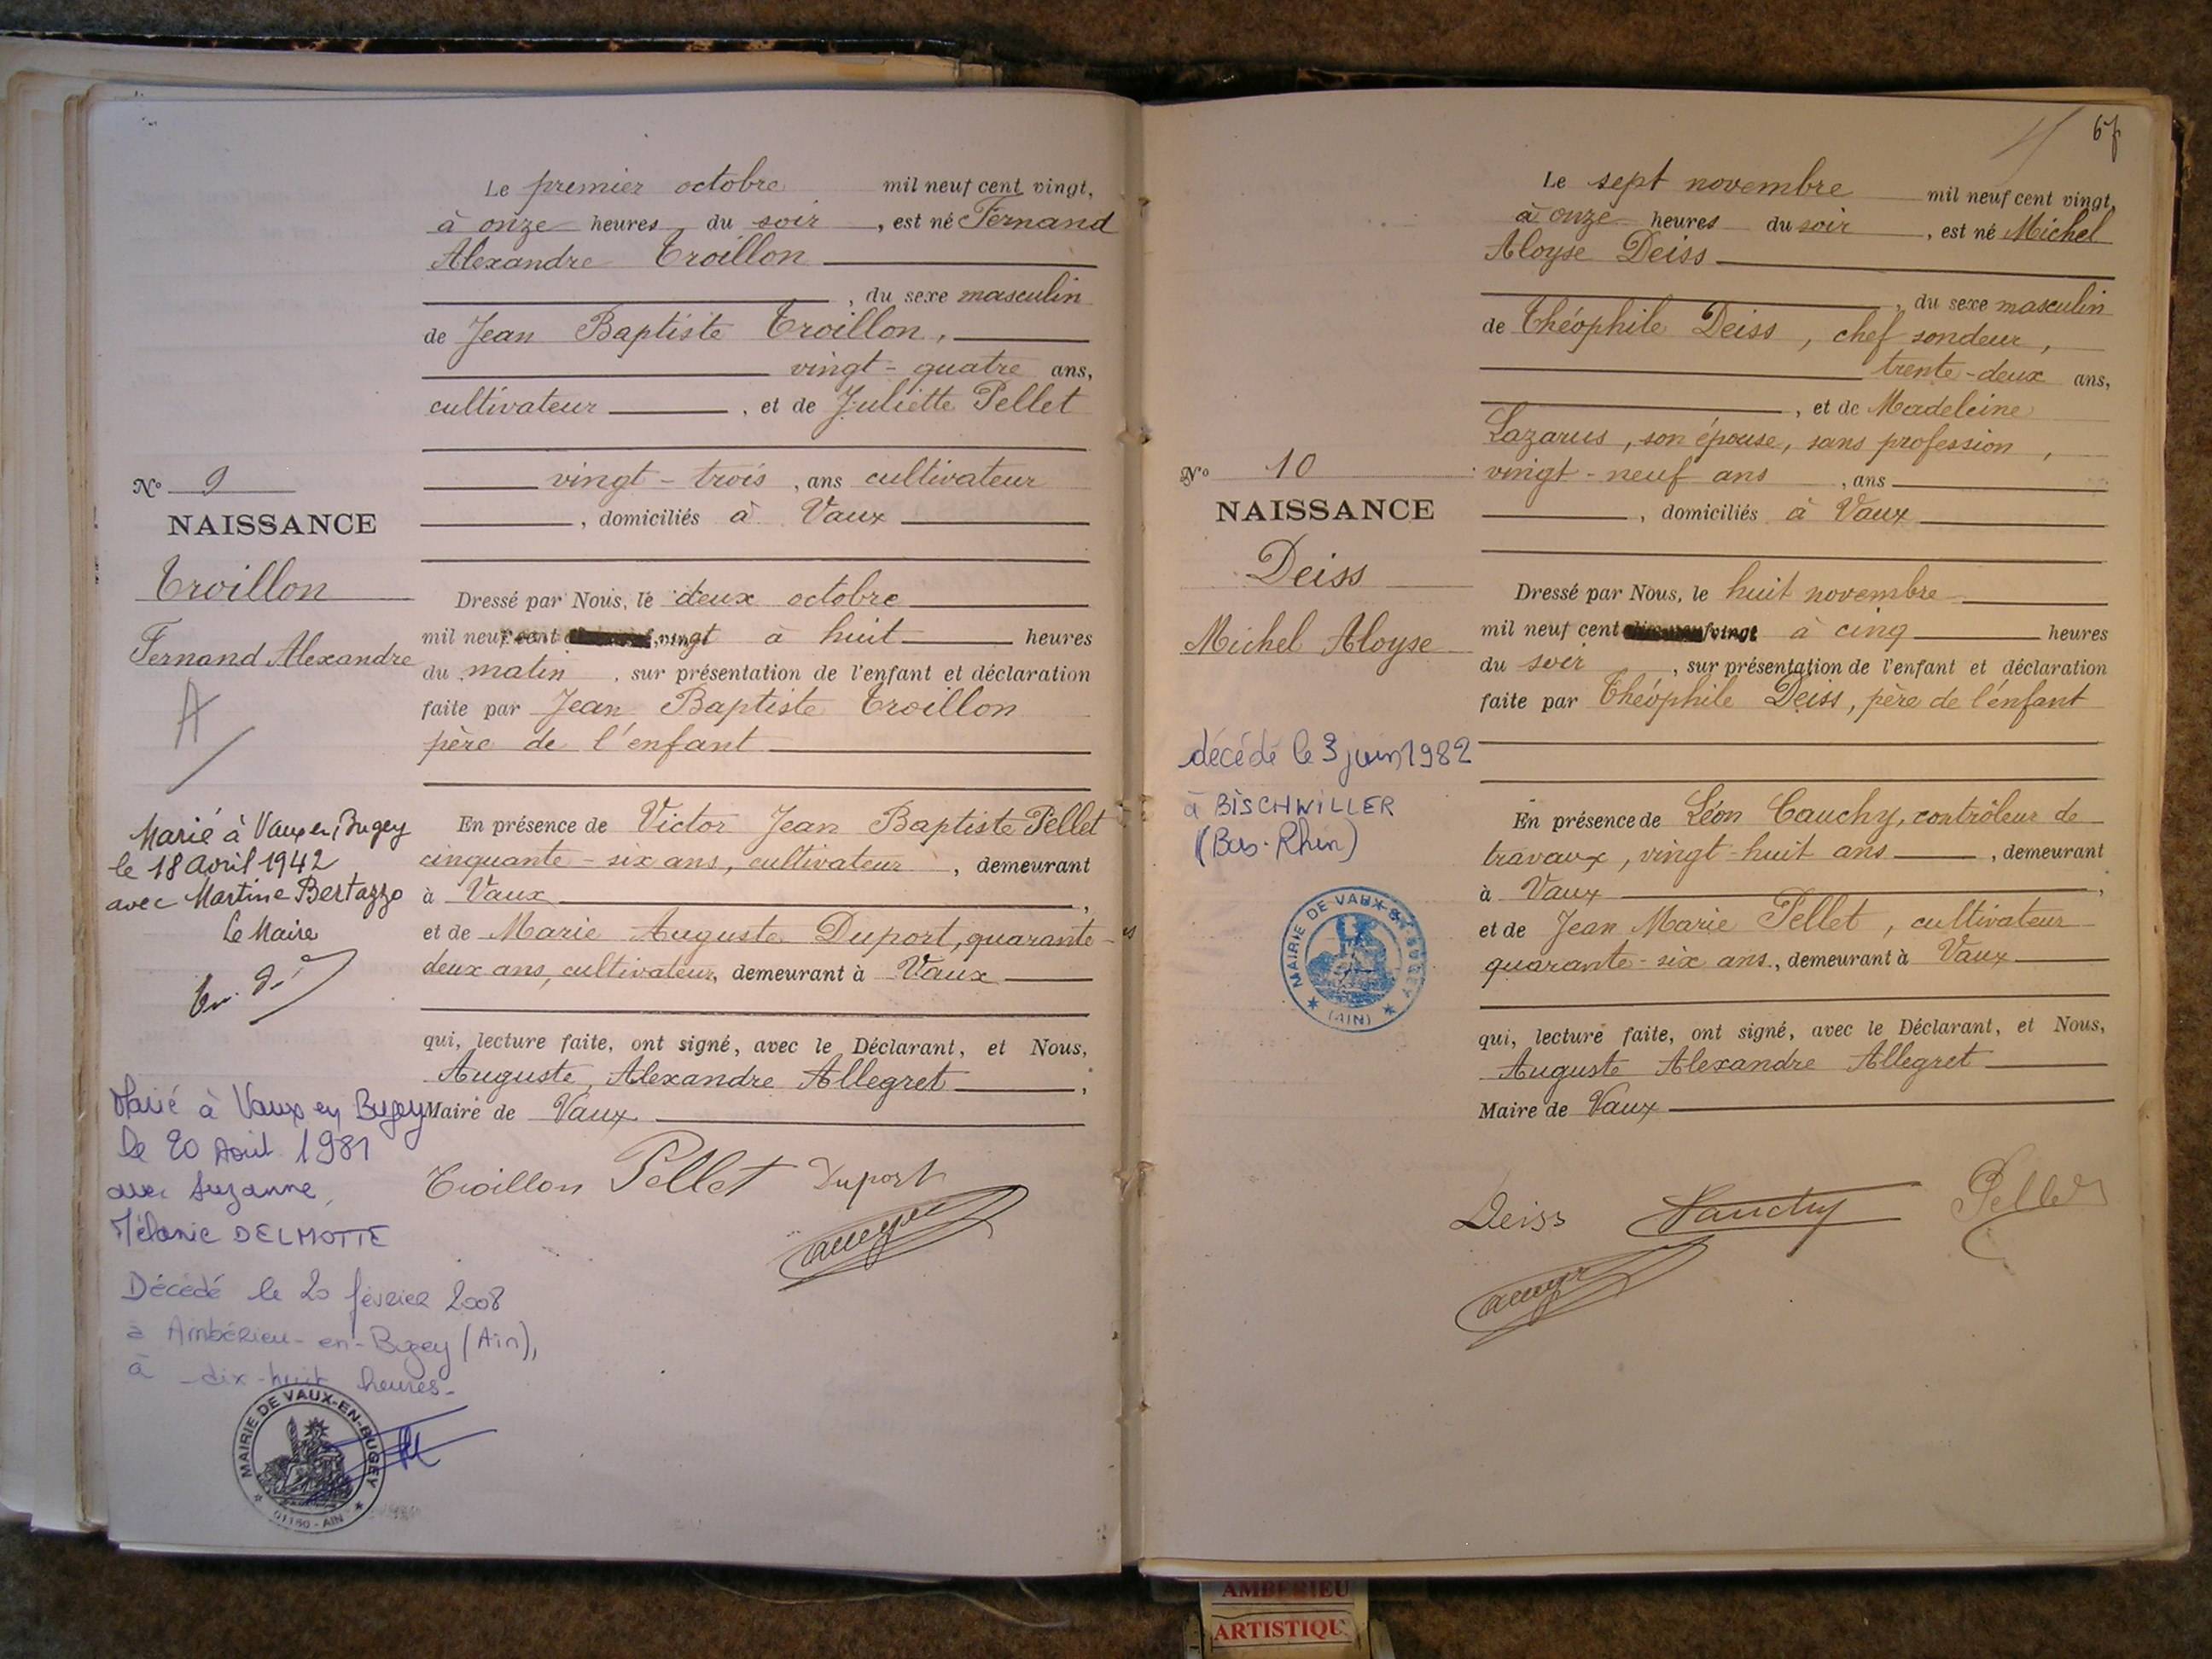 Le premier octobre mil neuf cent vingt,
à onze heures du soir, est né Fernand
Alexandre Troillon
, du sexe masculin
de Jean Baptiste Troillon,
vingt-quatre ans,
cultivateur, et de Juliette Pellet
vingt-trois, ans cultivateur
, domiciliés à Vaux
Dressé par Nous, le deux octobre
mil neuf cent vingt à huit heures
du matin, sur présentation de l'enfant et déclaration
faite par Jean Baptiste Troillon
père de l'enfant
En présence de Victor Jean Baptiste Pellet
cinquante-six ans, cultivateur, demeurant
à Vaux,
et de Marie Auguste Duport, quarante-
deux ans, cultivateur, demeurant à Vaux
qui, lecture faite, ont signé, avec le Déclarant, et Nous,
Auguste, Alexandre Allegret,
Maire de Vaux
Troillon Pellet Duport
N° 9
NAISSANCE
Troillon
Fernand Alexandre
A
Marié à Vaux en Bugey
le 18 avril 1942
avec Martine Bertazzo
Le Maire
Marié à Vaux en Bugey
le 20 Août 1981
avec Suzanne,
Mélanie DELMOTTE
Décédé le 20 février 2008
à Ambérieu-en-Bugey (Ain),
à dix-huit heures-
MAIRIE DE VAUX-EN-BUGEY
01150 - AIN
67
Le sept novembre mil neuf cent vingt,
à onze heures du soir, est né Michel
Aloyse Deiss
, du sexe masculin
de Théophile Deiss, chef sondeur,
trente-deux ans,
, et de Madeleine
Lazarus, son épouse, sans profession,
vingt-neuf ans, ans
, domiciliés à Vaux
Dressé par Nous, le huit novembre
mil neuf cent vingt à cinq heures
du soir, sur présentation de l'enfant et déclaration
faite par Théophile Deiss, père de l'enfant
En présence de Léon Cauchy, contrôleur de
travaux, vingt-huit ans, demeurant
à Vaux,
et de Jean Marie Pellet, cultivateur
quarante-six ans, demeurant à Vaux
qui, lecture faite, ont signé, avec le Déclarant, et Nous,
Auguste Alexandre Allegret
Maire de Vaux
Deiss Cauchy Pellet
N° 10
NAISSANCE
Deiss
Michel Aloyse
décédé le 3 juin 1982
à BISCHWILLER
(Bas-Rhin)
MAIRIE DE VAUX-EN-BUGEY
(AIN)
AMBERIEU
ARTISTIQU